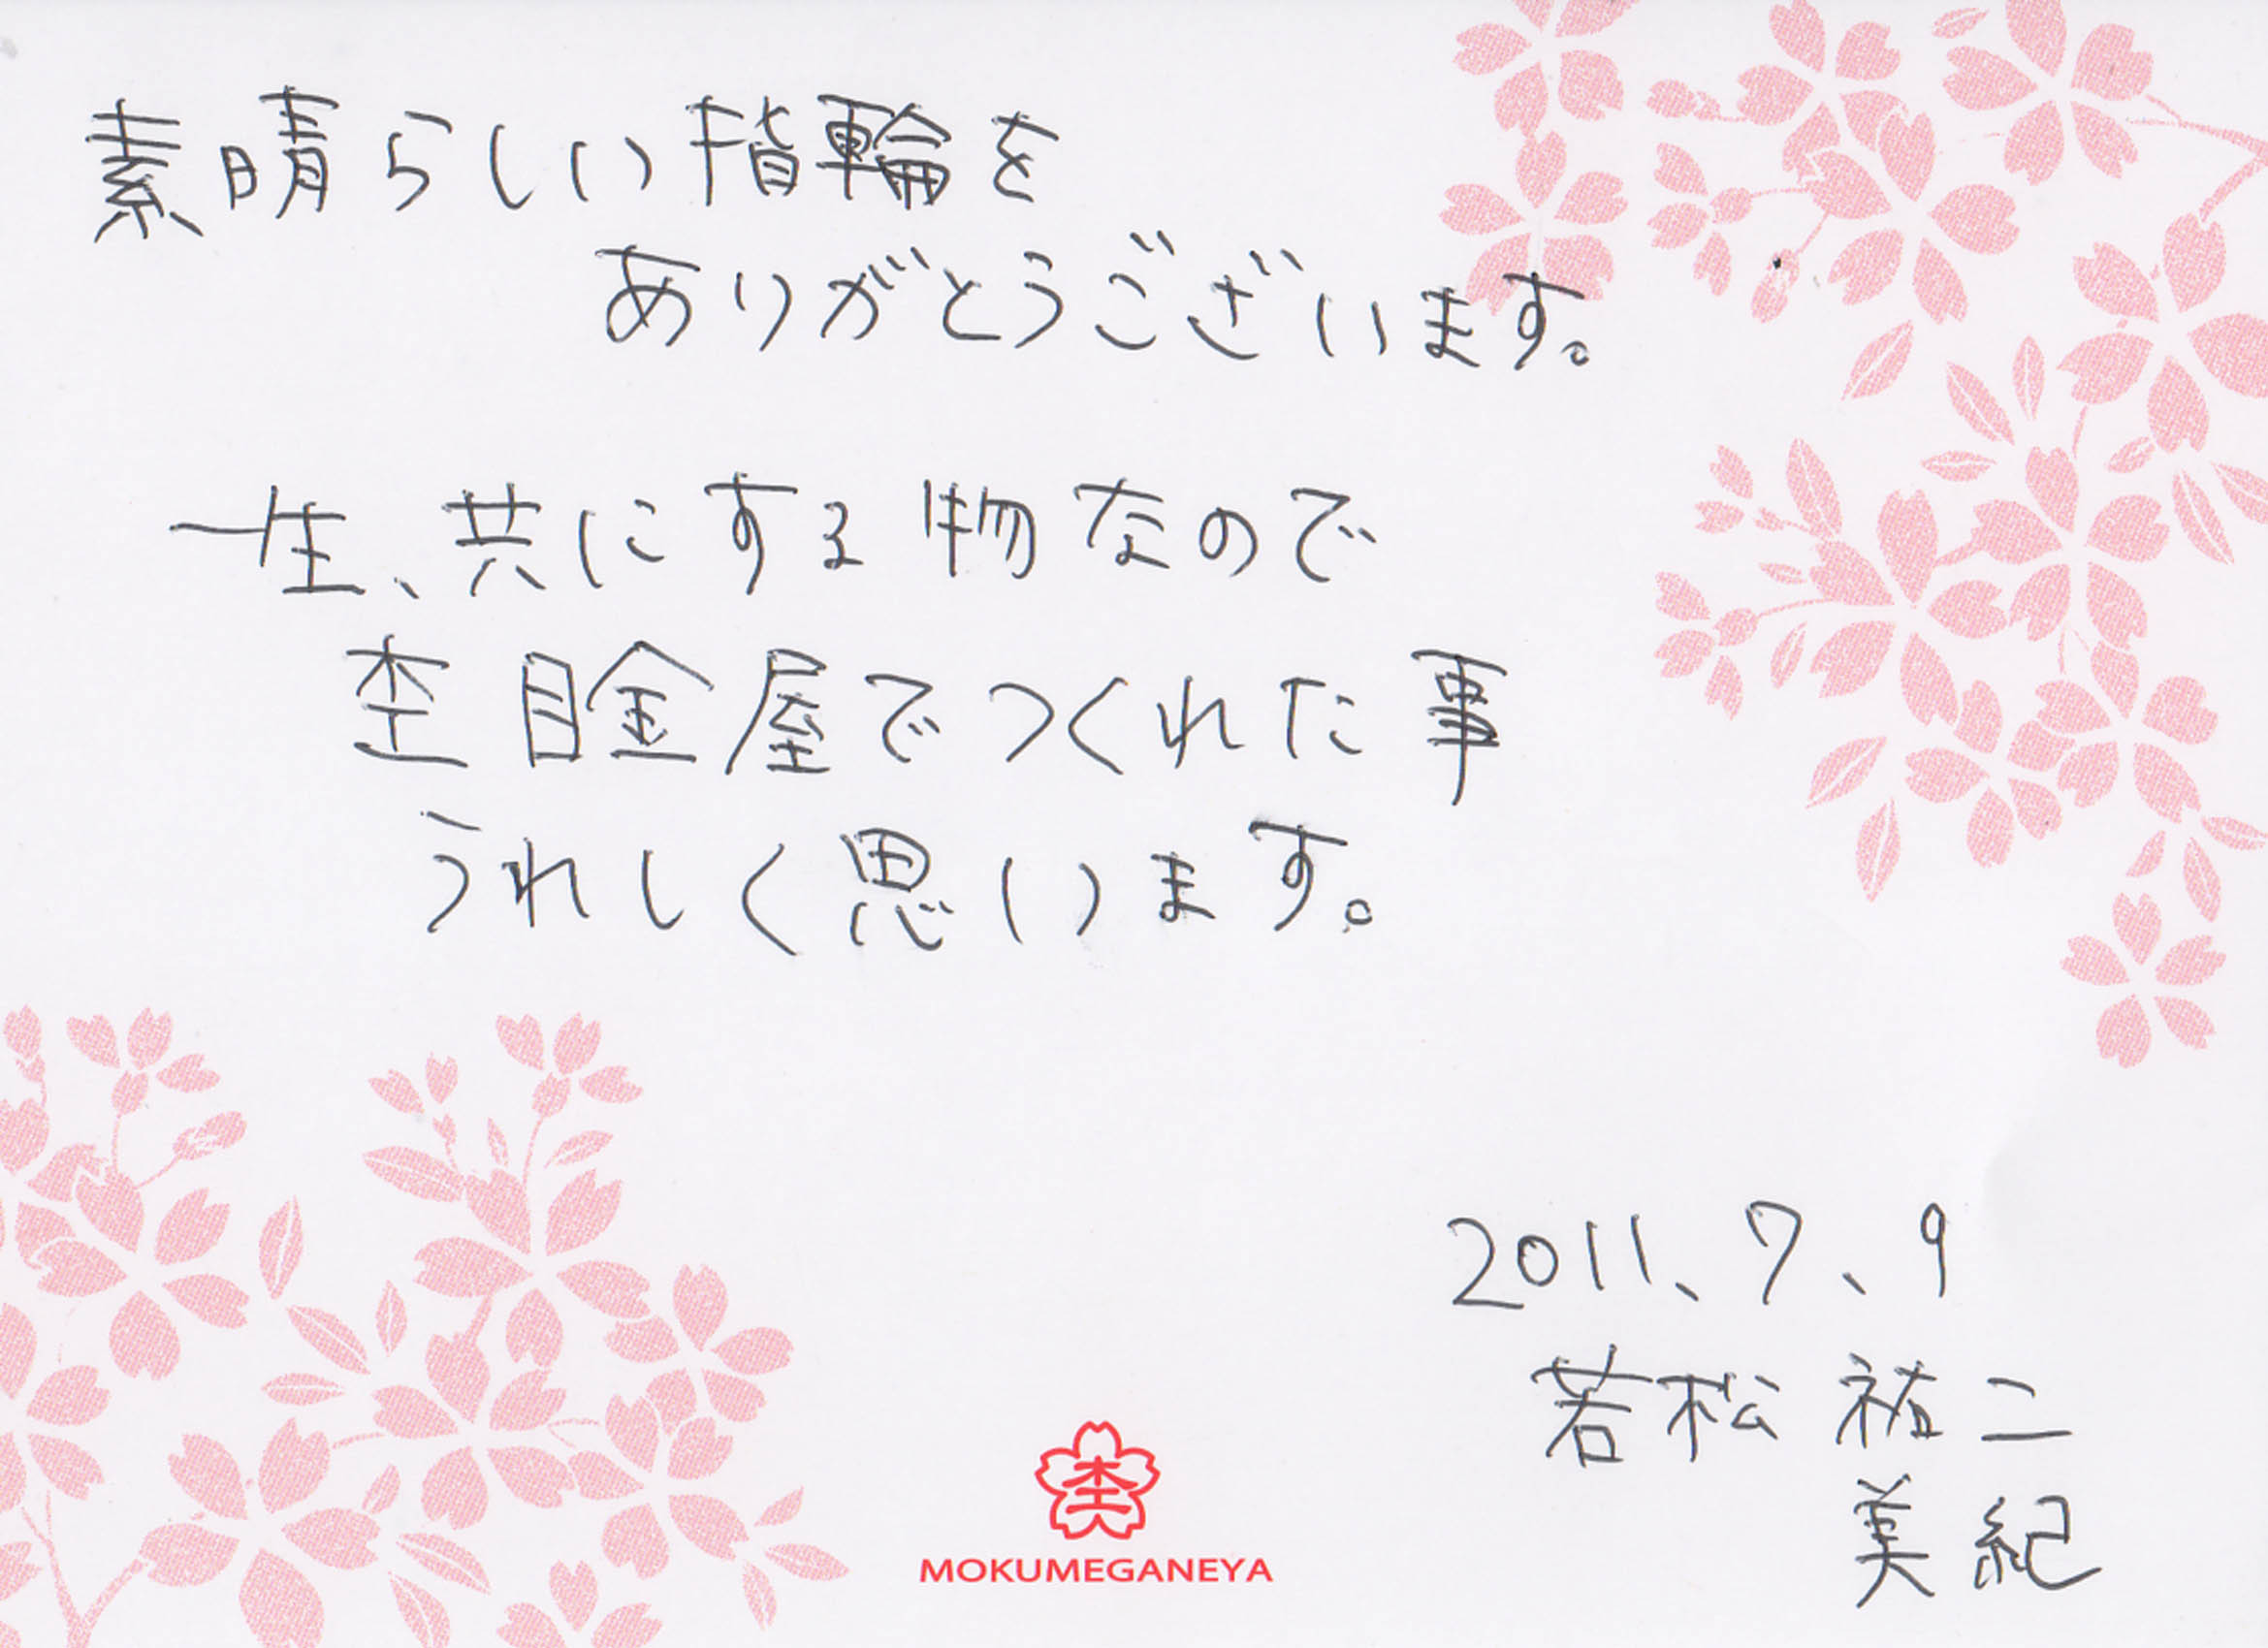 素晴らしい指輪を
ありがとうございます。
一生、共にする物なので
杢目金屋でつくれた事
うれしく思います。
2011、7、9
若松 祐二
美紀
杢
MOKUMEGANEYA